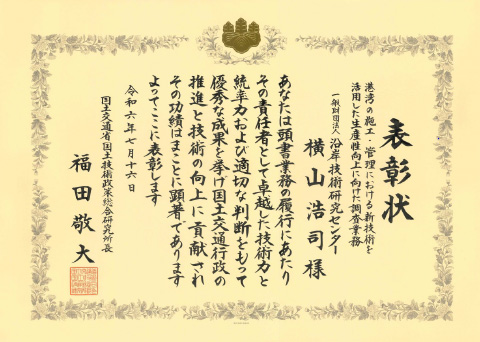 表彰状
港湾の施工・管理における新技術を
活用した生産性向上に向けた調査業務
一般財団法人 沿岸技術研究センター
横山浩司様
あなたは頭書業務の履行にあたり
その責任者として卓越した技術力と
統率力および適切な判断をもって
優秀な成果を挙げ国土交通行政の
推進と技術の向上に貢献され
その功績はまことに顕著であります
よってここに表彰します
令和六年七月十六日
国土交通省国土技術政策総合研究所長
福田敬大